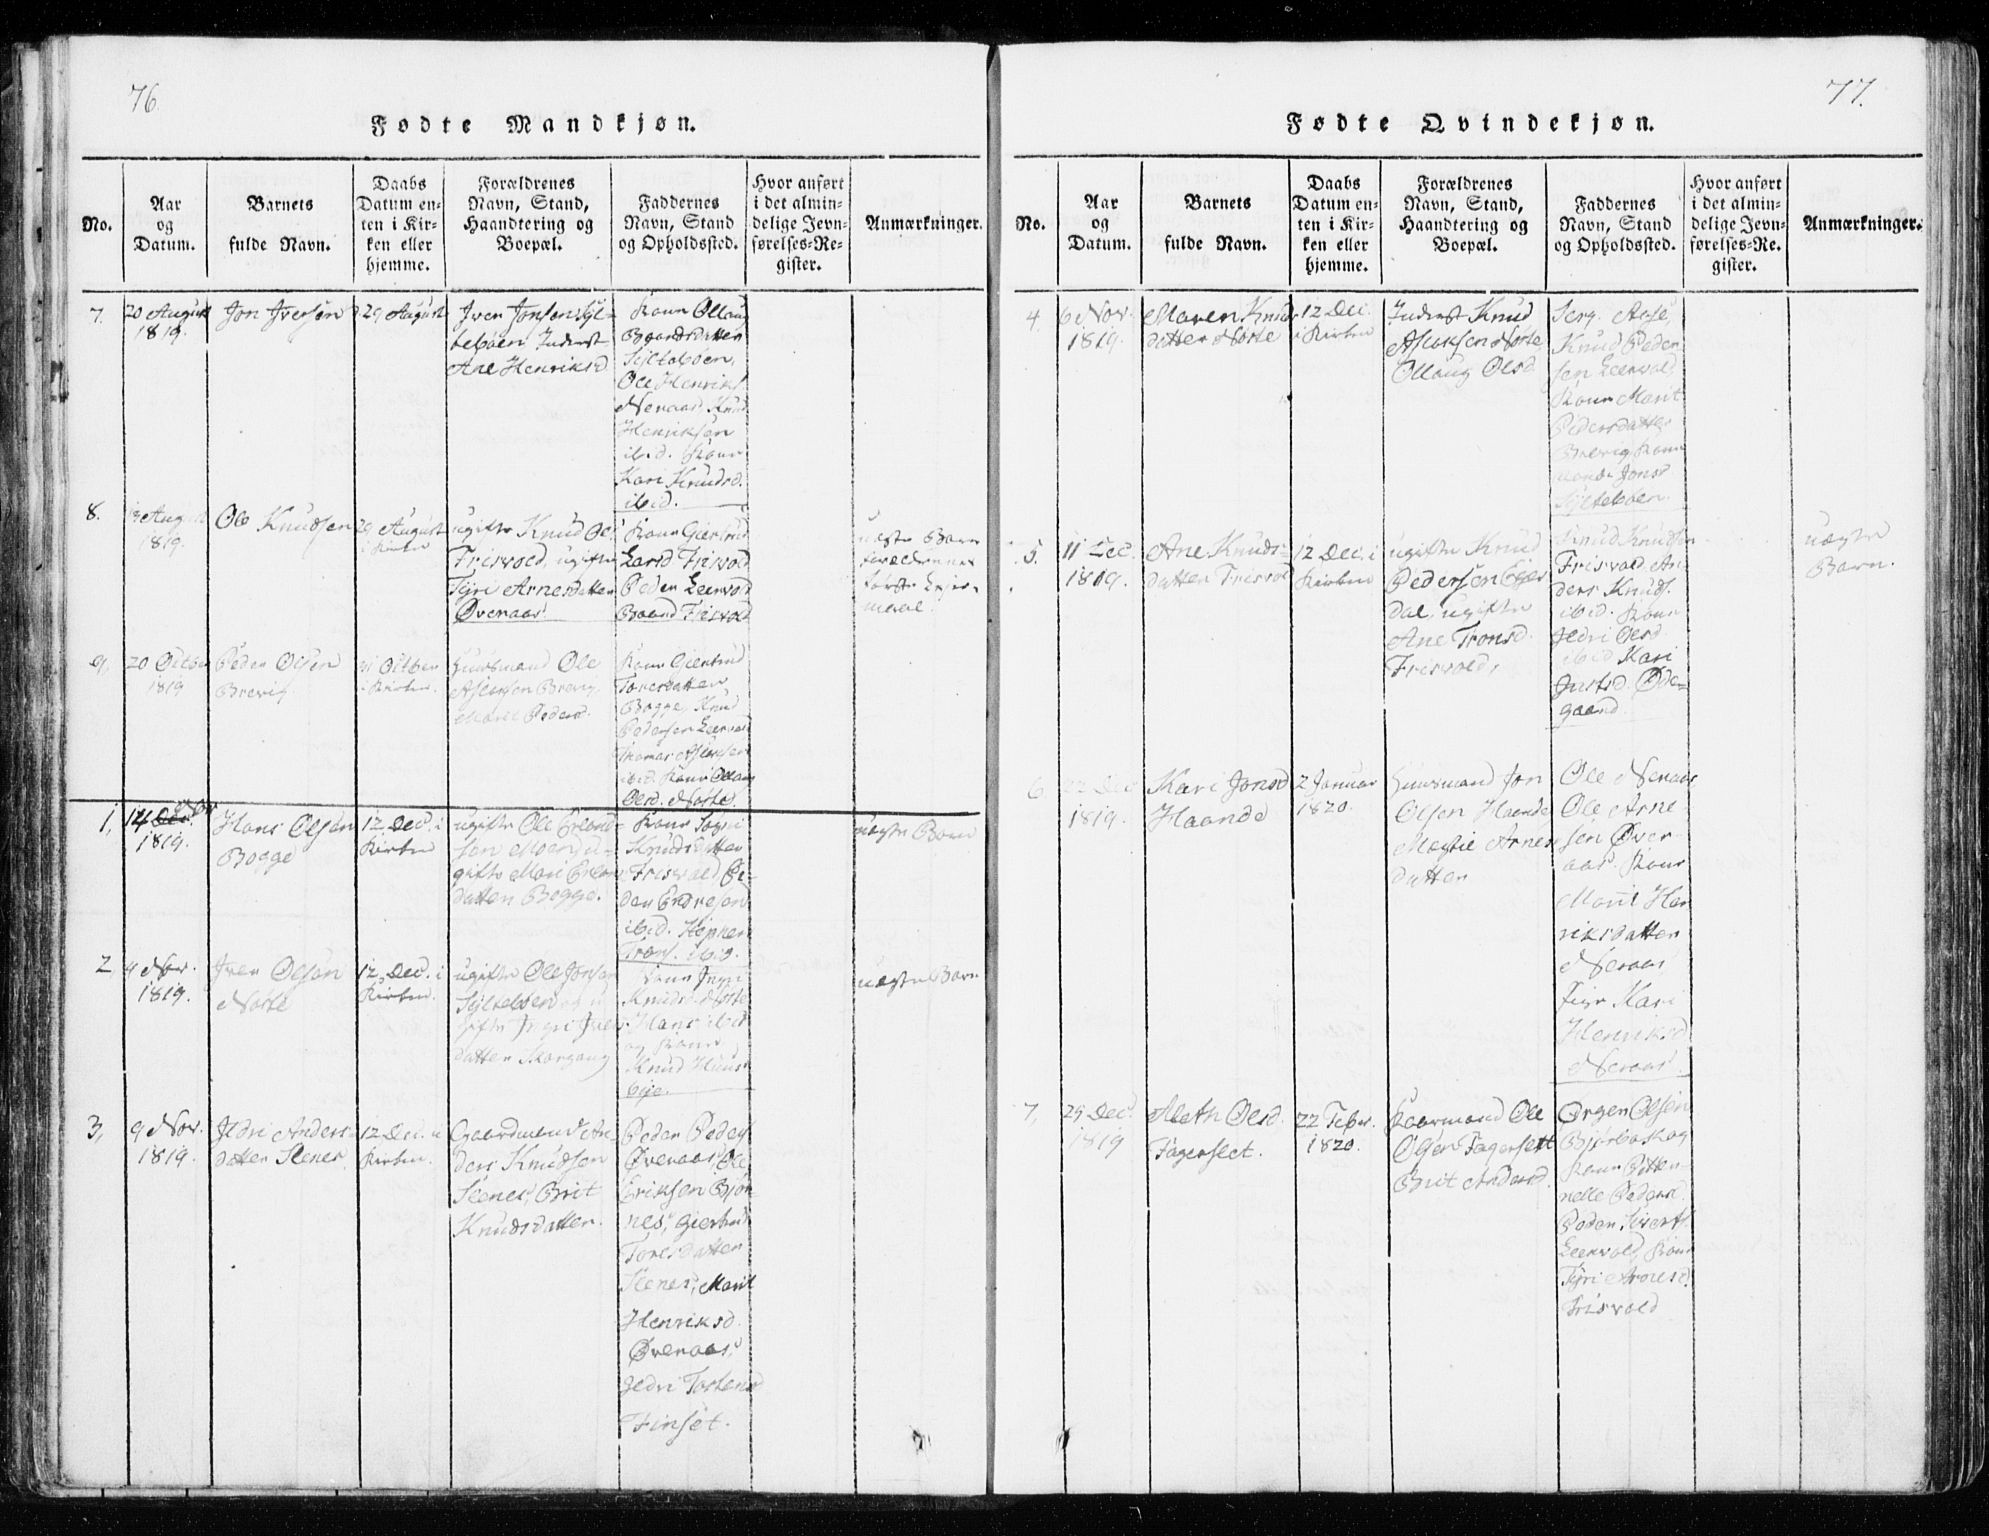 76.
Fødte Mandkjøn.
No.
Aar
og
Datum.
Barnets
fulde Navn.
Daabs
Datum en-
ten i Kir-
ken eller
hjemme.
Forældrenes
Navn, Stand,
Haandtering og
Boepæl.
Faddernes
Navn, Stand
og Opholdssted.
Hvor anført
i det almin-
delige Jevn-
førelses-Re-
gister.
Anmærkninger.
7.
20 August
1819.
Jon Iversøn
29 August
Iver Jonsen Syl-
tebøen Inderst
Ane Henriksd
Kone Ollaug
Baardsdatter
Syltebøen,
Ole Henriks.
Neraas, Knud
Henriksøn
ibid. Kone
Kari Knudsd.
ibid.
8.
August
1819.
Ole Knudsen
29 August
i Kirken
ugifte Knud Ols.
Frisvold, ugifte
Arnesdatter
Øveraas
Kone Giertrud
Larsd Frisvold
Peder Leervold
Baard Frisvold
uægte Barn
forældrenes
første Lejer-
maal.
9.
20 Octber
1819
Peder Olsen
Brevig.
31 Octber
i Kirken.
Huusmand Ole
Aslaksen Brevig
Marit Pedersd.
Kone Giertrud
Toresdatter
Bogge, Knud
Pedersen Leervold
Thomas
ibid. Kone Ollaug
Olesd. Nøste.
1,
14 Nov
1819.
Hans Olsøn
Bogge
12 Dec. i
Kirken
ugifte Ole Erland-
søn Moen u-
gifte Mari Erlans
datter Bogge.
Kone
Knudsdatter
Frisvold, Pe-
der Endresøn
ibid.
Trons. ibid.
uægte Barn
2,
9 Nov.
1819.
Iver Olsøn
Nøste
12 Dec. i
Kirken.
ugifte Ole Jonsen
Syltebøen og u-
gifte Ingri Ivers
datter
Kone Ingri
Knudsd. Nøste
Hans ibid
og Kone
Knud Huus
bye.
uægte Barn
3,
9 Nov.
1819.
Anders-
datter Stenes
12 Dec. i
Kirken.
Gaardmand An-
ders Knudsøn
Stenes, Brit
Knudsdatter.
Peder Peders
Øveraas, Ole
Eriksen Bjør-
nes, Giertrud
Toresdatter
Stenes, Marit
Henriksd.
Øveraas,
Finset.
77.
Fødte Qvindekjøn.
No.
Aar
og
Datum.
Barnets
fulde Navn.
Daabs
Datum en-
ten i Kir-
ken eller
hjemme.
Forældrenes
Navn, Stand,
Haandtering og
Boepæl.
Faddernes
Navn, Stand
og Opholdssted.
Hvor anført
i det almin-
delige Jevn-
førelses-Re-
gister.
Anmærkninger.
4.
6 Nov.
1819.
Maren Knuds
datter Nøste
12 Dec.
i Kirken
Inderst Knud
Aslaksen Nøste
Ollaug Olsd
Serg. Aase,
Knud Peder
sen Leervold,
Kone Marit
Pedersdatter
Brevig Kone
Jonsd
Syltebøen.
5.
11 Dec.
1819.
Ane Knuds-
datter Frisvold
12 Dec. i
Kirken
ugifte Knud
Pedersen Eijes
dal, ugifte
Ane Tronsd.
Frisvold,
Knud Knudsen
Frisvold, An-
ders Knuds.
ibid. Kone
Olesd.
ibid Kari
Justsd. Øde-
gaard.
uægte
Barn.
6.
22 Dec
1819.
Kari Jonsd
Haande
2 Januar
1820.
Huusmand Jon
Olsen Haande
Arnes
datter
Ole Neraas
Ole Arne-
sen Øver
aas. Kone
Marit Hen
riksdatter
Neraas
Pige Kari
Henriksd
Neraas.
7,
29 Dec.
1819
Olesd.
Fagerslet.
22 Febr.
1820.
Ole
Olsen Fagerslett
Brit Andersd.
Ørgen Olsen
og
Kone Petter-
nelle Pedersd.
Peder Sivert.
Leervold, Kone
Arnesd.
Frisvold